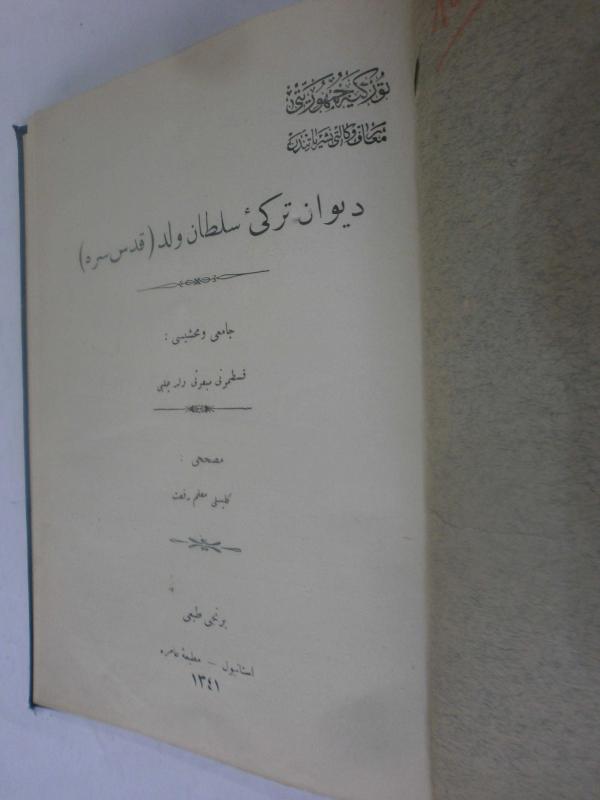 توركيه جمهوريتى
معارف وكالتى نشرياتندن
ديوان تركىٔ سلطان ولد (قدس سره)
جامعى ومحشيسى :
قسطمونى مبعوثى ولد چلبى
مصححى :
كليسلى معلم رفعت
برنجى طبعى
استانبول — مطبعهٔ عامره
١٣٤١